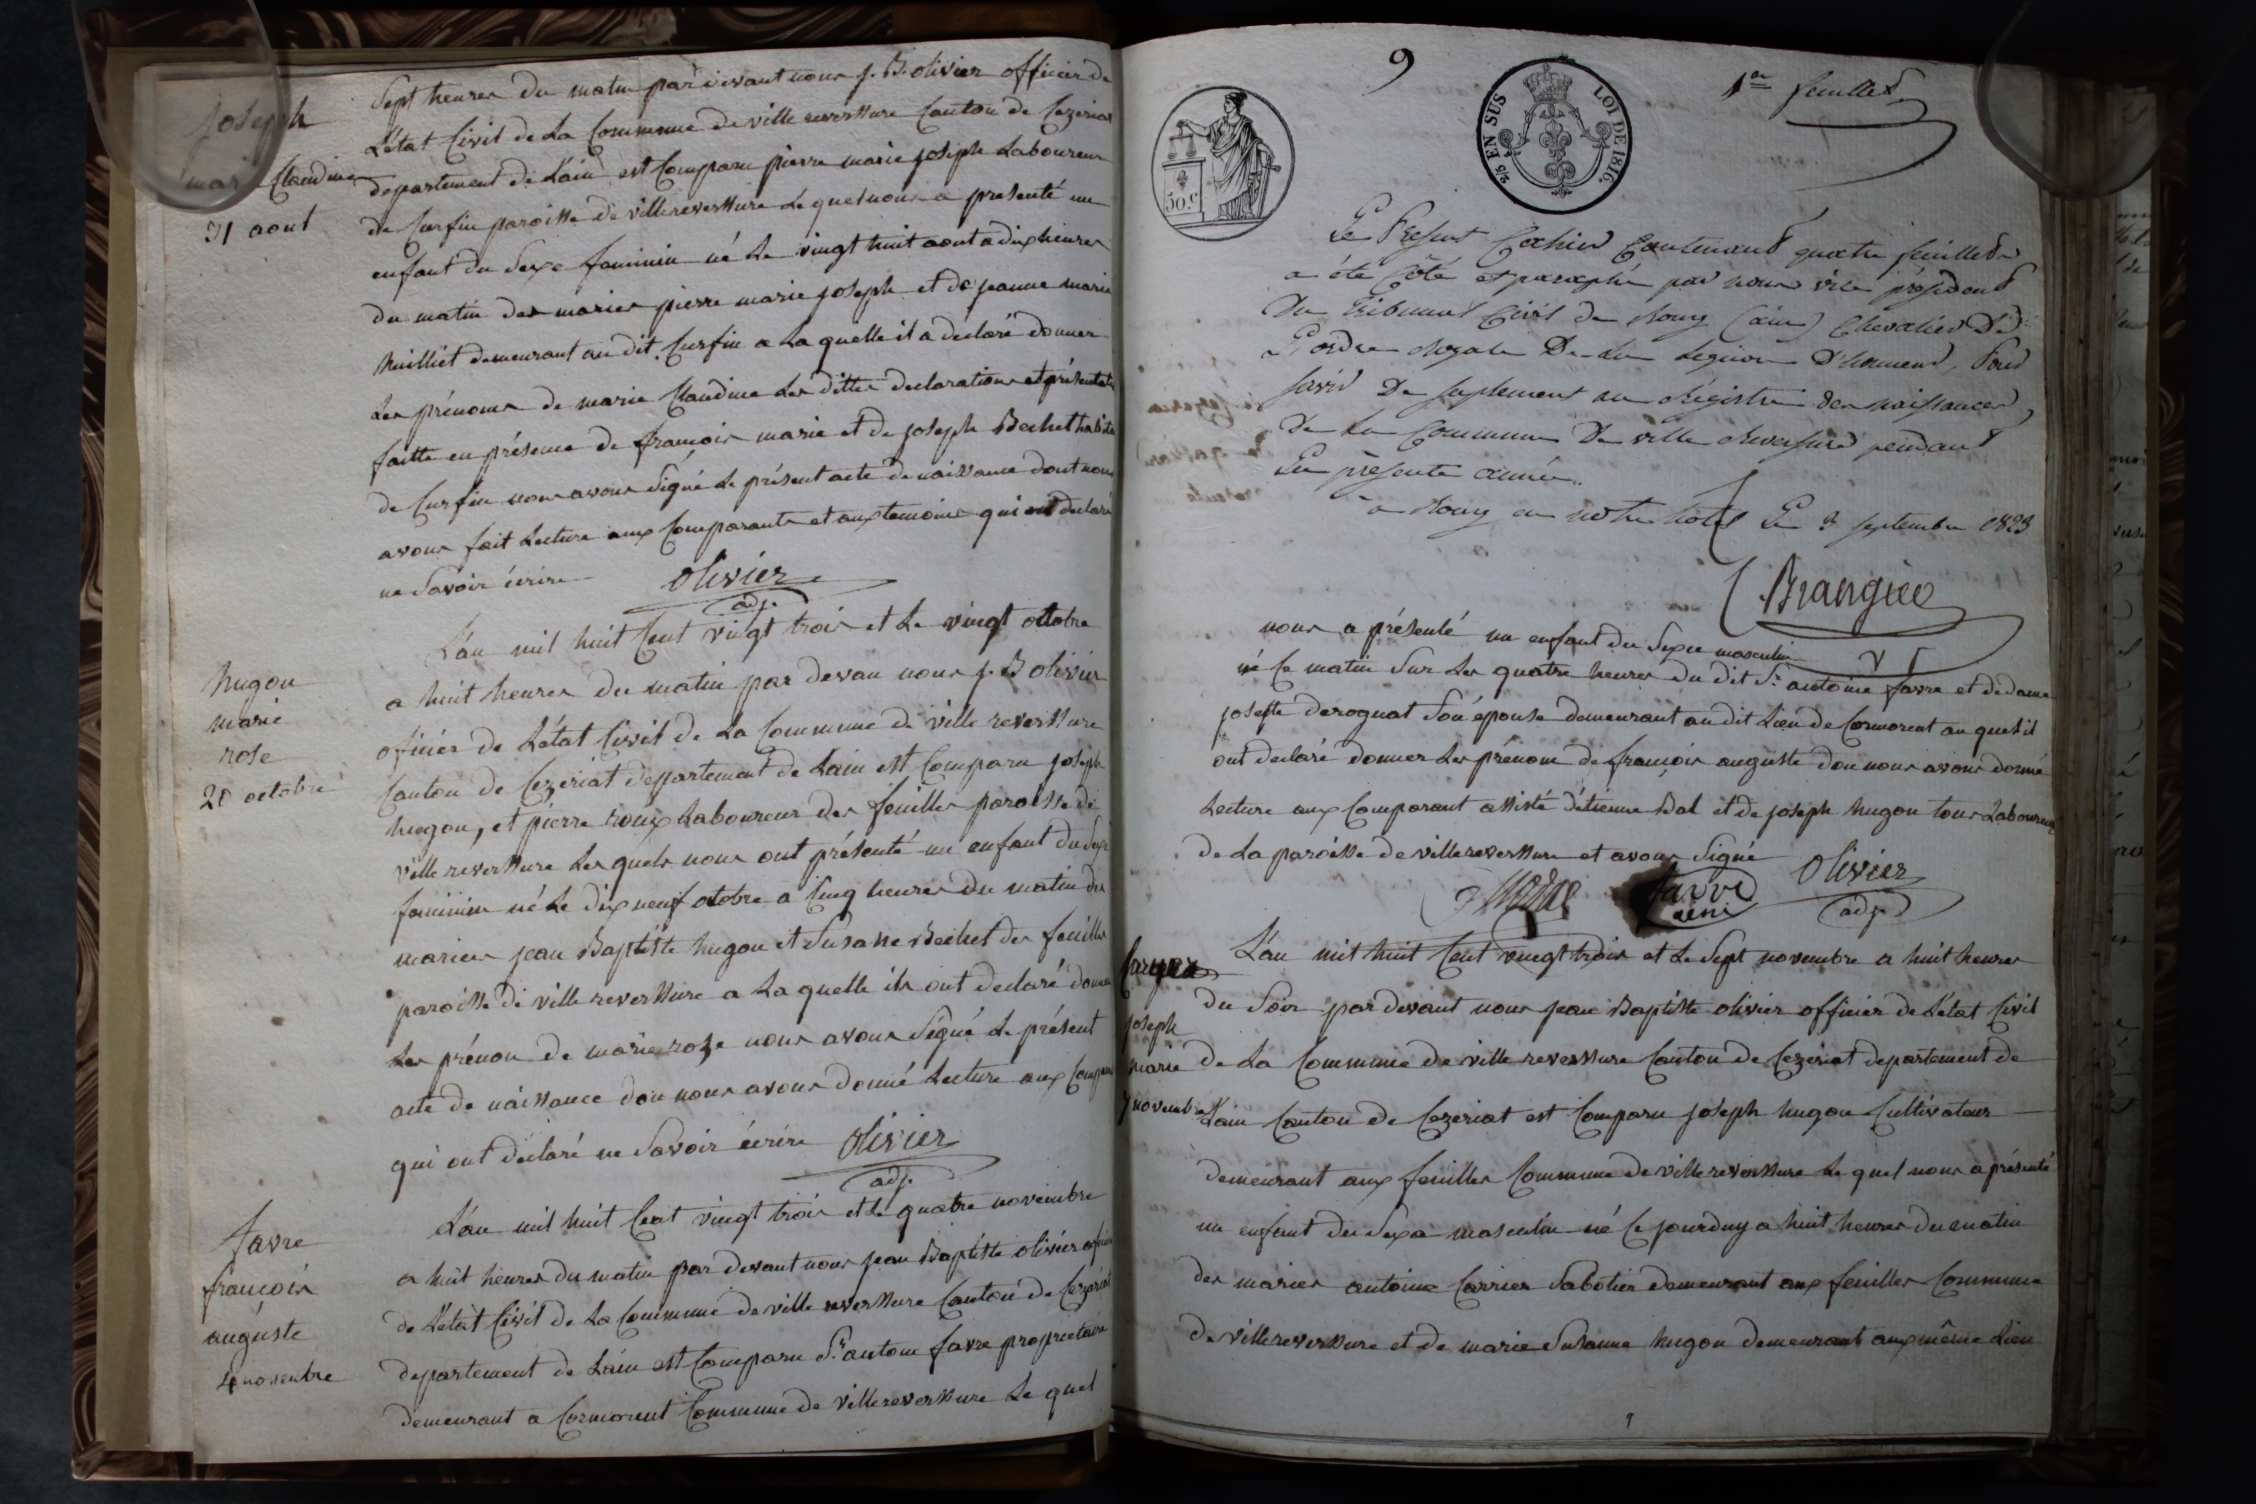 joseph
marie Claudine
31 aout
Sept heures du matin par devant nous j. B. olivier officier de
L'état Civil de La Commune de ville reverssure Canton de Cezeriat
departement de L'ain est Comparu pierre marie joseph Laboureur
de Curfin paroisse de villereverssure Le quel nous a presenté un
enfant du Sexe faminin né Le vingt huit aout a dix heures
du matin des mariés pierre marie joseph et de jeanne marie
huilliet demeurant au dit Curfin a La quelle il a declaré donner
Les prénoms de marie Claudine Les dittes declarations et présentat
faitte en présence de françois marie et de joseph Bechet habita
de Curfin nous avons Signé Le présent acte de naissance dont nous
avons fait Lecture aux Comparants et aux temoins qui ont declaré
ne Savoir écrire olivier
adj.
hugon
marie
rose
20 octobre
L'an mil huit Cent vingt trois et Le vingt octobre
a huit heures du matin par devan nous j. B olivier
oficier de L'état Civil de La Commune de ville reverssure
Canton de Cezeriat departement de Lain est Comparu joseph
hugon, et pierre roux Laboureur des feuilles paroisse de
ville reverssure Les quels nous ont présenté un enfant du Sexe
faminin né Le dix neuf octobre a Cinq heures du matin des
mariés jean Baptiste hugon et Susanne Bechet des feuilles
paroisse de ville reverssure a La quelle ils ont declaré donner
Les prénon de marie roze nous avons Signé Le présent
acte de naissance don nous avons donné Lecture aux Compara
qui ont déclaré ne Savoir écrire olivier
adj.
favre
françois
auguste
4 novembre
L'an mil huit Cent vingt trois et Le quatre novembre
a huit heures du matin par devant nous jean Baptiste olivier oficier
de L'état Civil de La Commune de ville reverssure Canton de Cezeriat
departement de Lain est Comparu Sr. antoine favre proprietaire
demeurant a Cormorent Commune de villereverssure Le quel
9
50.c
2/5 EN SUS LOI DE 1816.
1er feuillet
Le Présent Cahier Contenant quatre feuillets
a été Coté et paraphé par nous vice président
Du Tribunal Civil de Bourg (ain) Chevalier De
L'ordre Royale De La Légion D'honneur, Pour
Servir De Suplement au Régistre des naissances
De La Commune De ville Reverssure pendant
La présente année.
à Bourg en notre hôtel Le 3 septembre 1823
Brangier
nous a présenté un enfant du Sexe masculin
né Ce matin Sur Les quatre heures du dit Sr. antoine favre et de dame
josefte derognat Son épouse demeurant au dit Lieu de Cormorent au quel il
ont declaré donner Les prénom de françois auguste don nous avons donné
Lecture aux Comparant assisté d'étienne Bal et de joseph hugon tous Laboureur
de La paroisse de villereverssure et avons Signé
favre
aèné
olivier
adj.
Carrier
joseph
marie
7 novembre
L'an mil huit Cent vingt trois et Le Sept novembre a huit heures
du Soir par devant nous jean Baptiste olivier officier de L'état Civil
de La Commune de ville reverssure Canton de Cezeriat departement de
L'ain Canton de Cezeriat est Comparu joseph hugon Cultivateur
demeurant aux feuilles Commune de ville reverssure Le quel nous a présenté
un enfant du Sexe masculin né Ce jourduy a huit heures du matin
des mariés antoine Carrier Sabotier demeurant aux feuilles Commune
de villereverssure et de marie Susanne hugon demeurant aux même Lieu